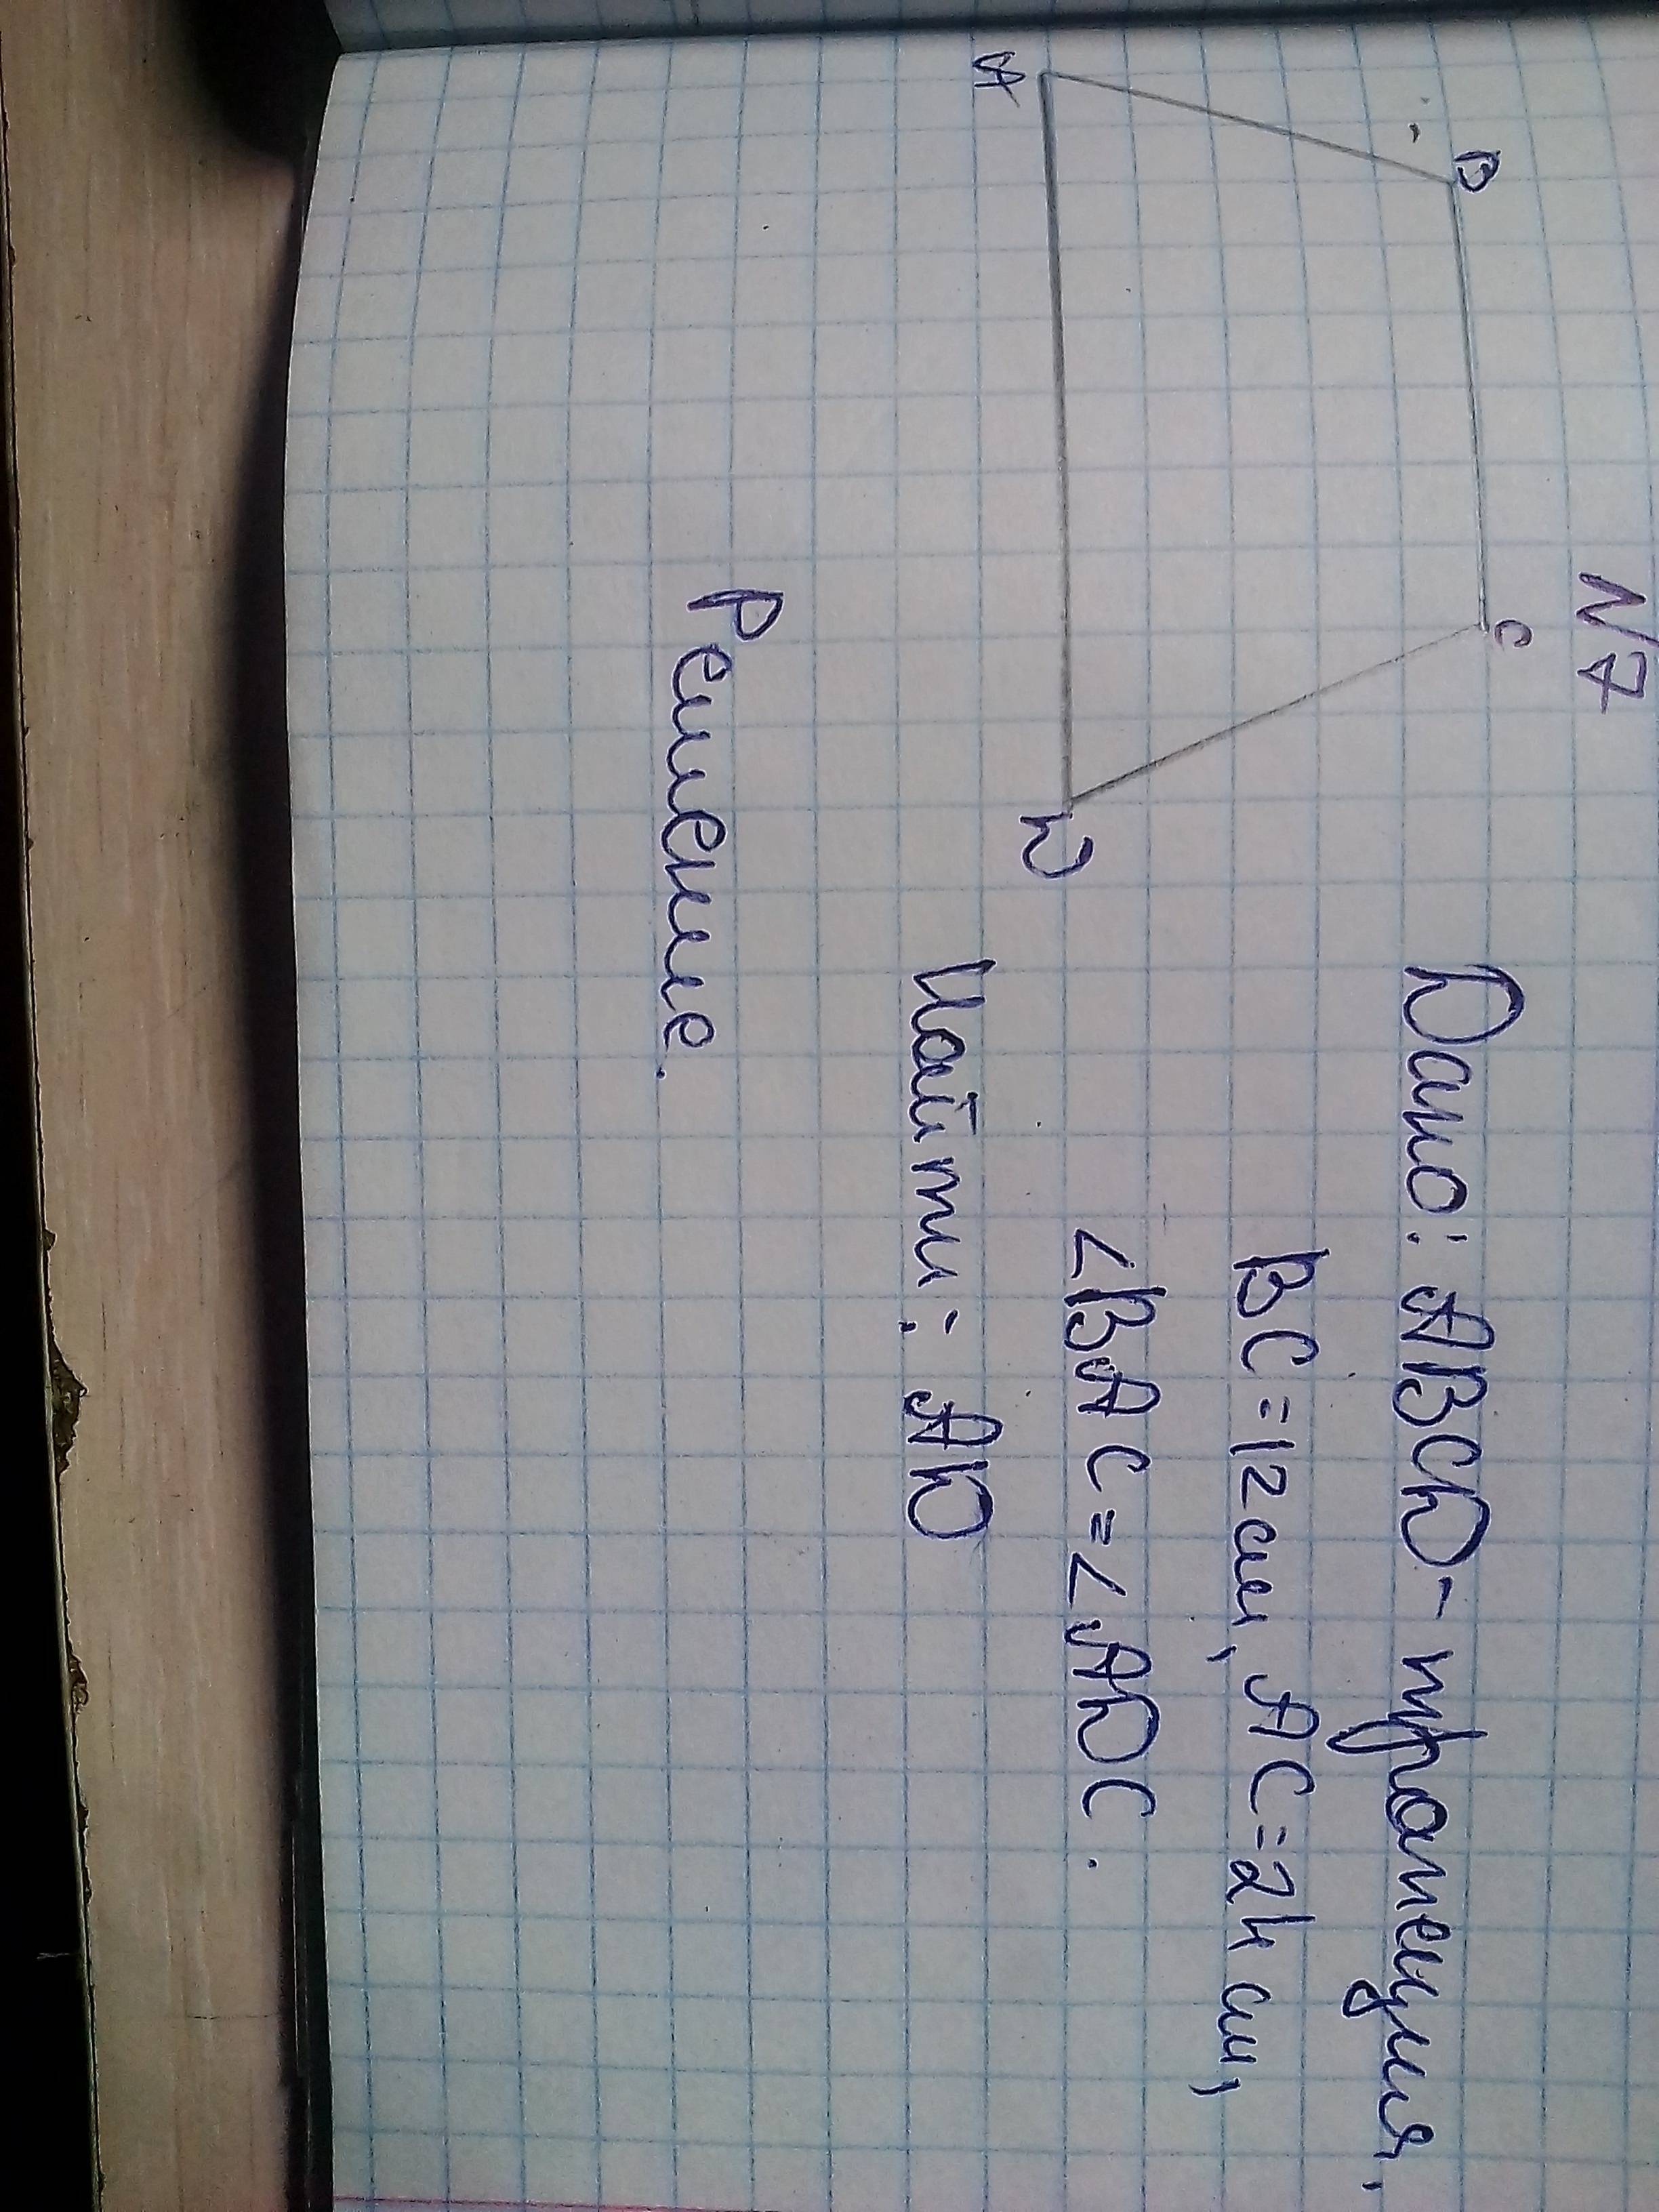 N7
B
C
A
D
Дано: ABCD - трапеция,
BC = 12 см, AC = 24 см,
∠BAC = ∠ADC.
Найти: AD
Решение.